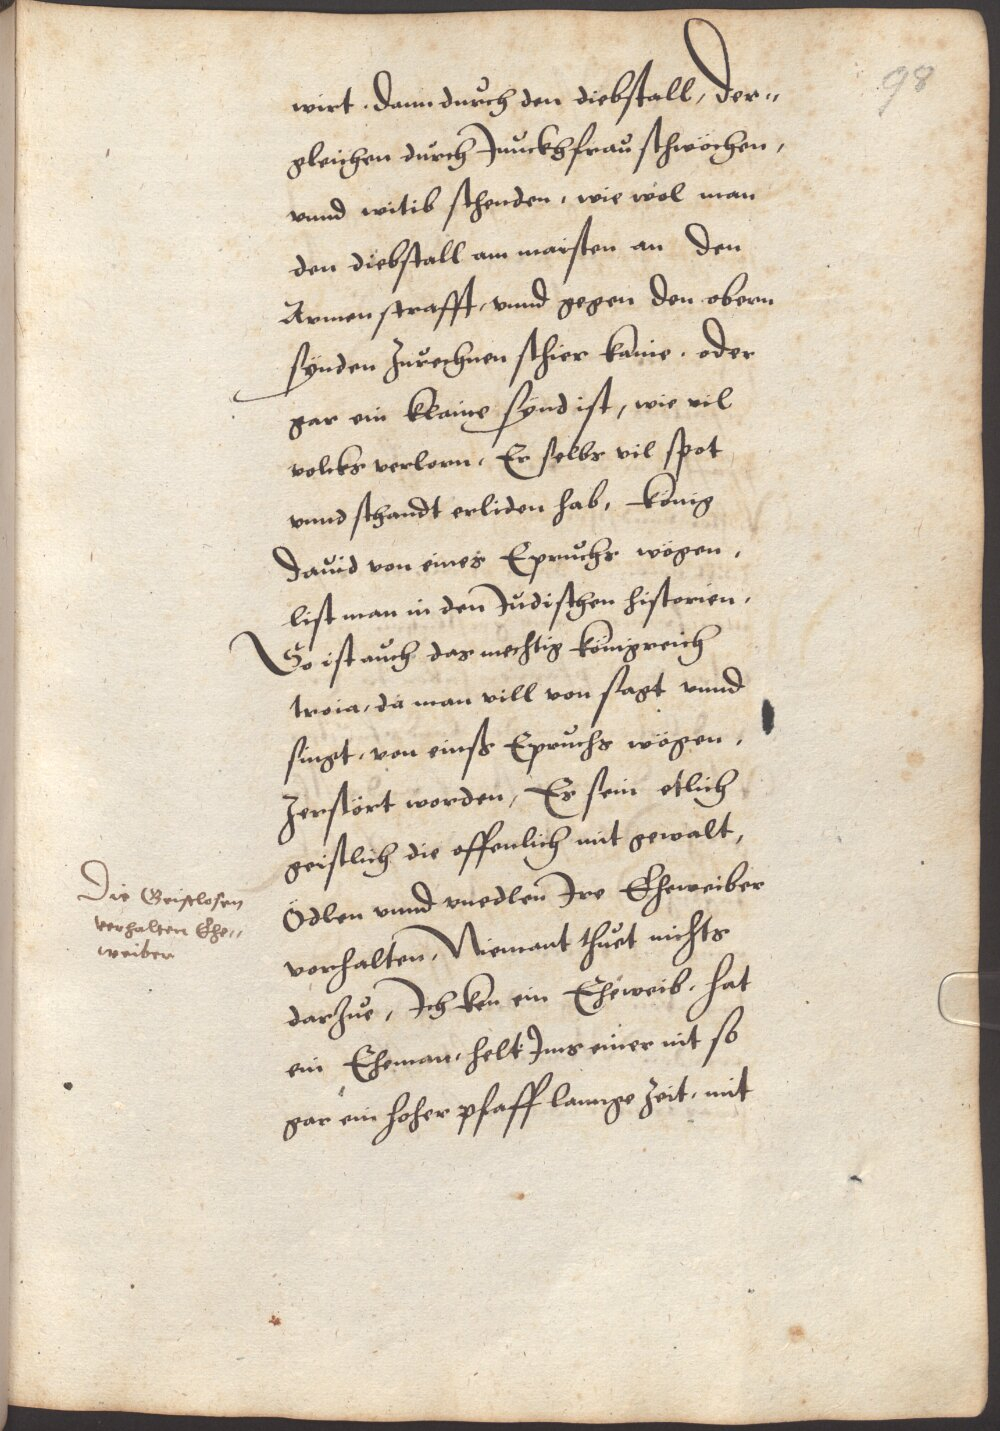 98
wirt. dann durch den diebstall, der„
gleichen durch Junckhfrau schwöchen,
vnnd witib schenden, wie wol man
den diebstall am maisten an den
Armen strafft, vnnd gegen den obern
synden Zurechnen schier kaine. oder
gar ein klaine synd ist, wie vil
volcks verlorn, Er selbs vil spot
vnnd schandt erliden hab, könig
Dauid von eines Epruchs wögen,
list man in den Judischen historien.
So ist auch das mechtig königreich
troia, da man vill von sagt vnnd
singt, von einß Epruchs wögen,
Zerstört worden, Es sein etlich
geistlich die offenlich mit gewalt,
Ödlen vnnd vnedlen Ire Eheweiber
vorhalten, Niemant thuet nichts
darZue, Ich ken ein Eheweib, hat
ein Eheman, helt Ims einer nit so
gar ein hoher pfaff lannge Zeit, mit
Die Geistlosen
verhalten Ehe„
weiber